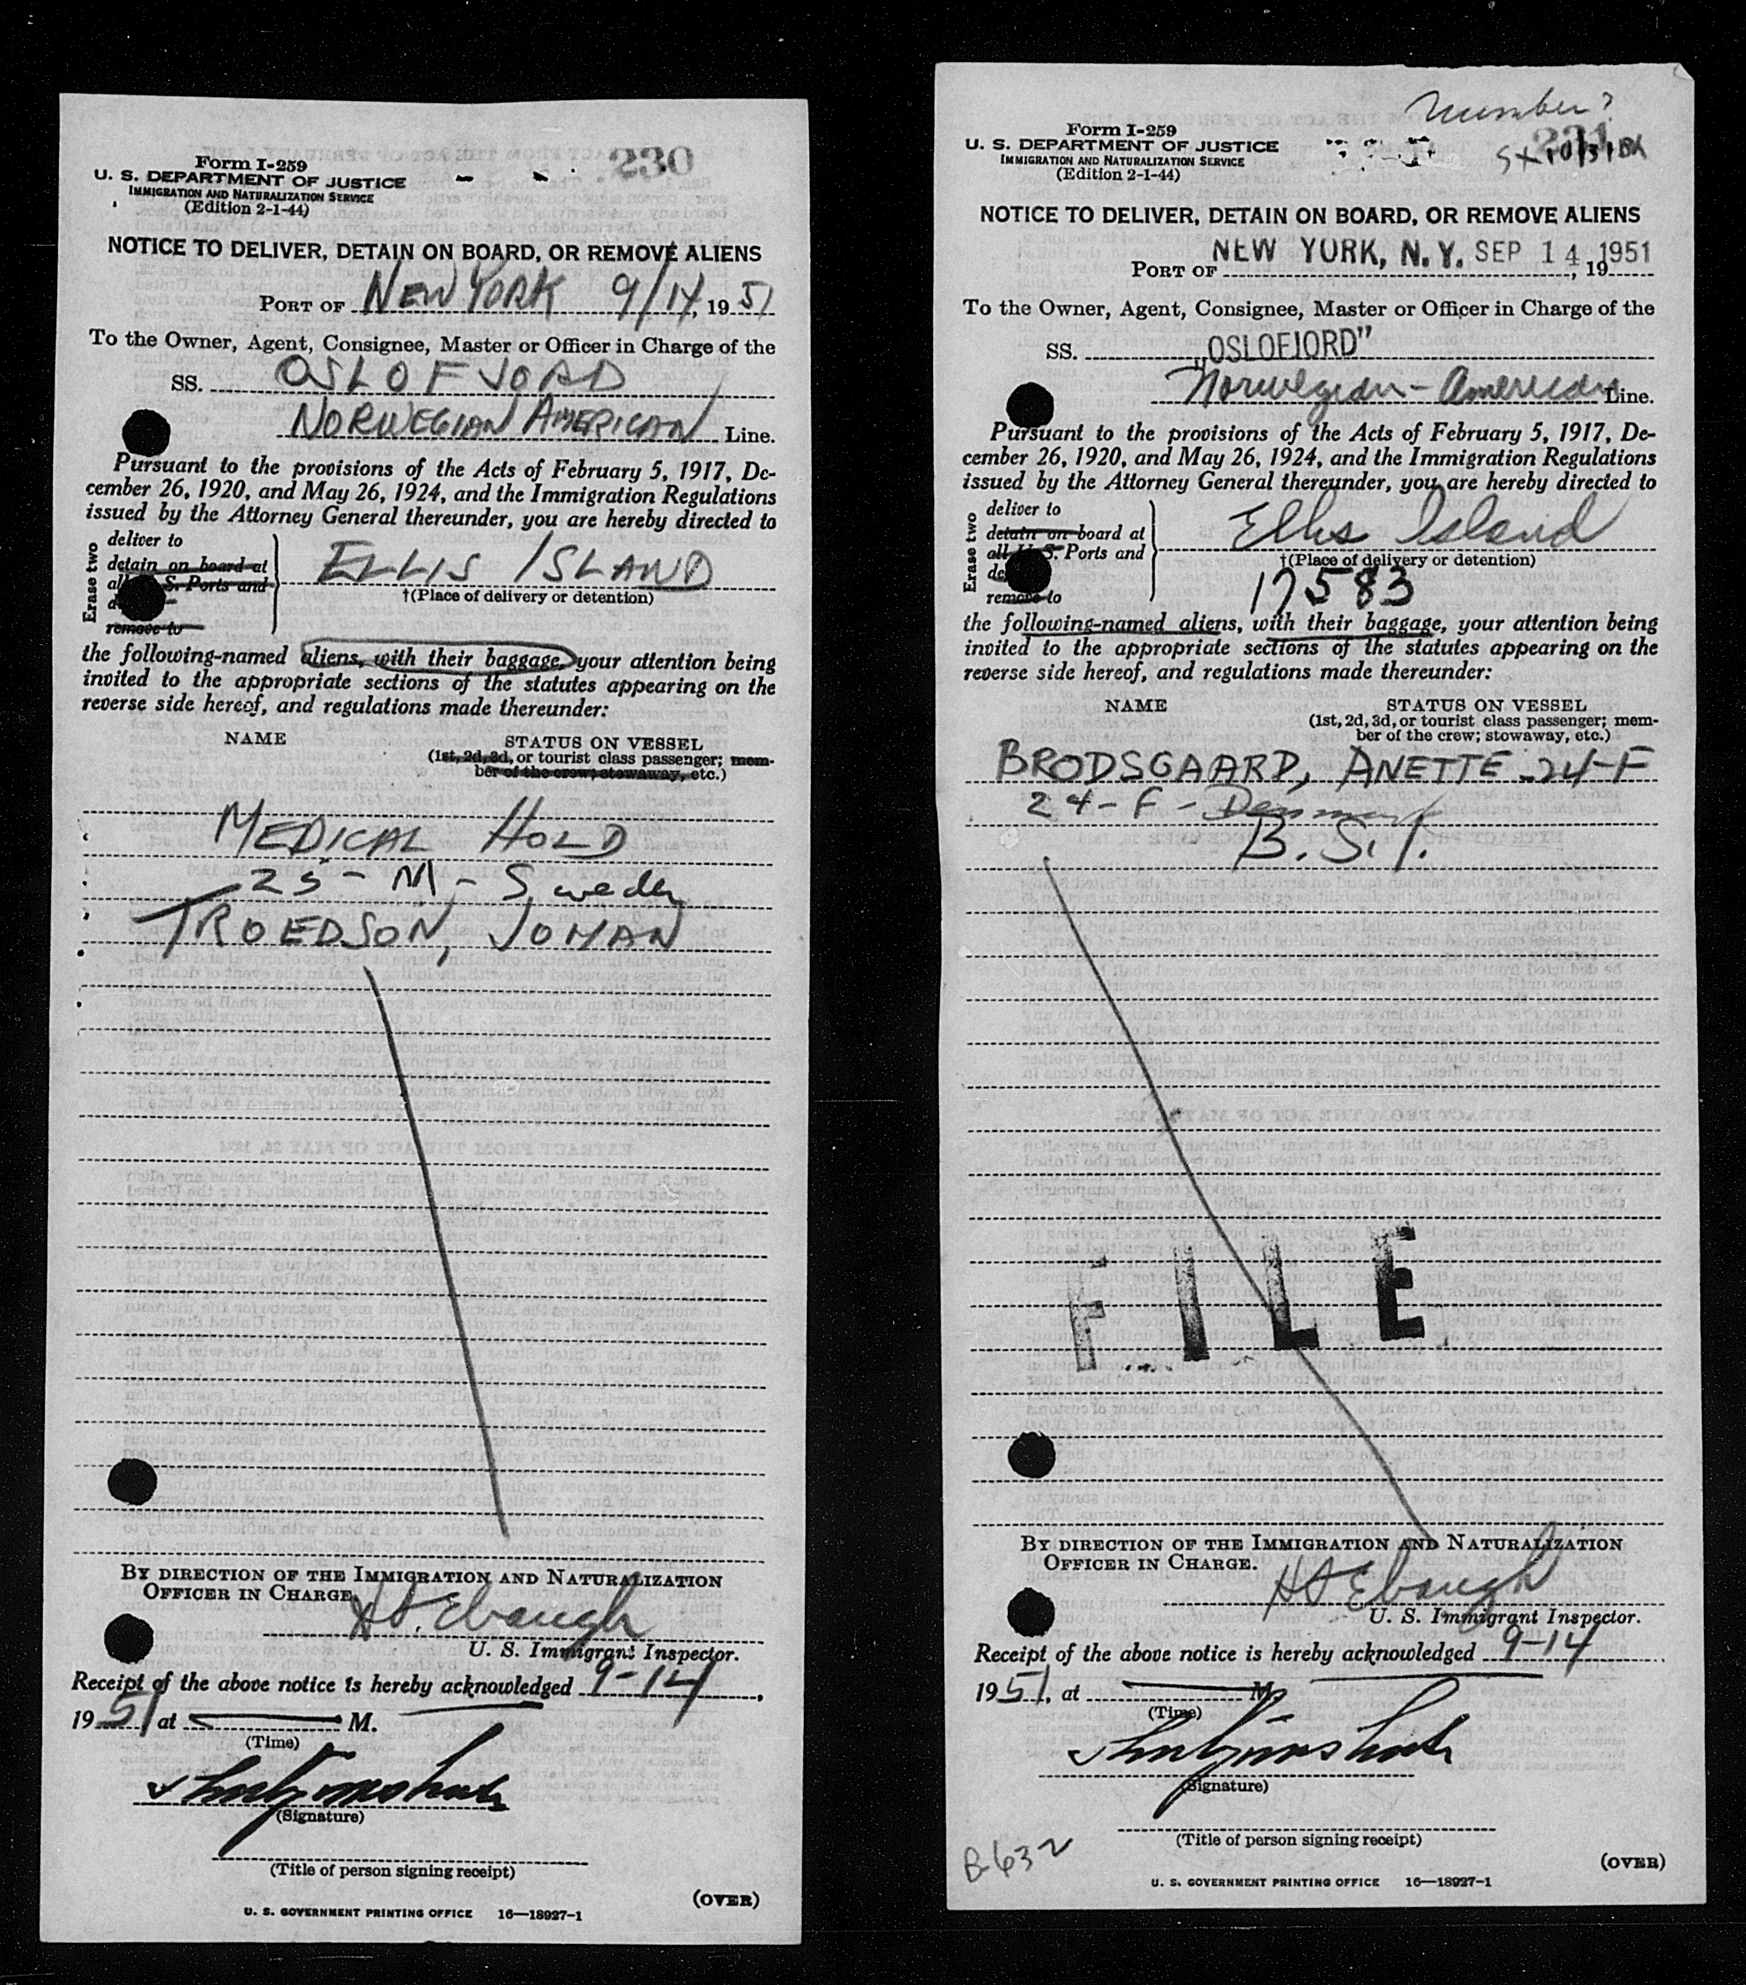 Form I-259
U. S. DEPARTMENT OF JUSTICE
IMMIGRATION AND NATURALIZATION SERVICE
(Edition 2-1-44)
230
NOTICE TO DELIVER, DETAIN ON BOARD, OR REMOVE ALIENS
PORT OF NEW YORK 9/14, 1951
To the Owner, Agent, Consignee, Master or Officer in Charge of the
SS. OSLOFJORD
NORWEGIAN AMERICAN Line.
Pursuant to the provisions of the Acts of February 5, 1917, De-
cember 26, 1920, and May 26, 1924, and the Immigration Regulations
issued by the Attorney General thereunder, you are hereby directed to
Erase two
deliver to
detain on board at
all U. S. Ports and
remove to
ELLIS ISLAND
†(Place of delivery or detention)
the following-named aliens, with their baggage, your attention being
invited to the appropriate sections of the statutes appearing on the
reverse side hereof, and regulations made thereunder:
NAME STATUS ON VESSEL
(1st, 2d, 3d, or tourist class passenger; mem-
ber of the crew; stowaway, etc.)
MEDICAL HOLD
25 - M - Sweden
TROEDSON, JOHAN
BY DIRECTION OF THE IMMIGRATION AND NATURALIZATION
OFFICER IN CHARGE.
H. Ebaugh
U. S. Immigrant Inspector.
Receipt of the above notice is hereby acknowledged 9-14,
1951 at M.
(Time)
(Signature)
(Title of person signing receipt)
(OVER)
U. S. GOVERNMENT PRINTING OFFICE 16—18927-1
Number?
Form I-259
U. S. DEPARTMENT OF JUSTICE
IMMIGRATION AND NATURALIZATION SERVICE
(Edition 2-1-44)
231
NOTICE TO DELIVER, DETAIN ON BOARD, OR REMOVE ALIENS
PORT OF NEW YORK, N. Y. SEP 14, 1951
To the Owner, Agent, Consignee, Master or Officer in Charge of the
SS. "OSLOFJORD"
Norwegian-American Line.
Pursuant to the provisions of the Acts of February 5, 1917, De-
cember 26, 1920, and May 26, 1924, and the Immigration Regulations
issued by the Attorney General thereunder, you are hereby directed to
Erase two
deliver to
detain on board at
all U. S. Ports and
remove to
Ellis Island
†(Place of delivery or detention)
17583
the following-named aliens, with their baggage, your attention being
invited to the appropriate sections of the statutes appearing on the
reverse side hereof, and regulations made thereunder:
NAME STATUS ON VESSEL
(1st, 2d, 3d, or tourist class passenger; mem-
ber of the crew; stowaway, etc.)
BRODSGAARD, ANETTE 24-F
24-F-Denmark
B.S.I.
FILE
BY DIRECTION OF THE IMMIGRATION AND NATURALIZATION
OFFICER IN CHARGE.
H Ebaugh
U. S. Immigrant Inspector.
Receipt of the above notice is hereby acknowledged 9-14
1951, at M.
(Time)
(Signature)
(Title of person signing receipt)
B-632
(OVER)
U. S. GOVERNMENT PRINTING OFFICE 16—18927-1